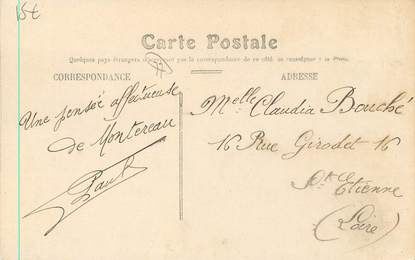 15€
Carte Postale
Quelques pays étrangers n'acceptent pas la correspondance de ce côté, se renseigner à la Poste.
77
CORRESPONDANCE
Une pensée affectueuse
de Montereau
Paul
ADRESSE
Melle Claudia Bouché
16 Rue Girodet 16
St Etienne
(Loire)